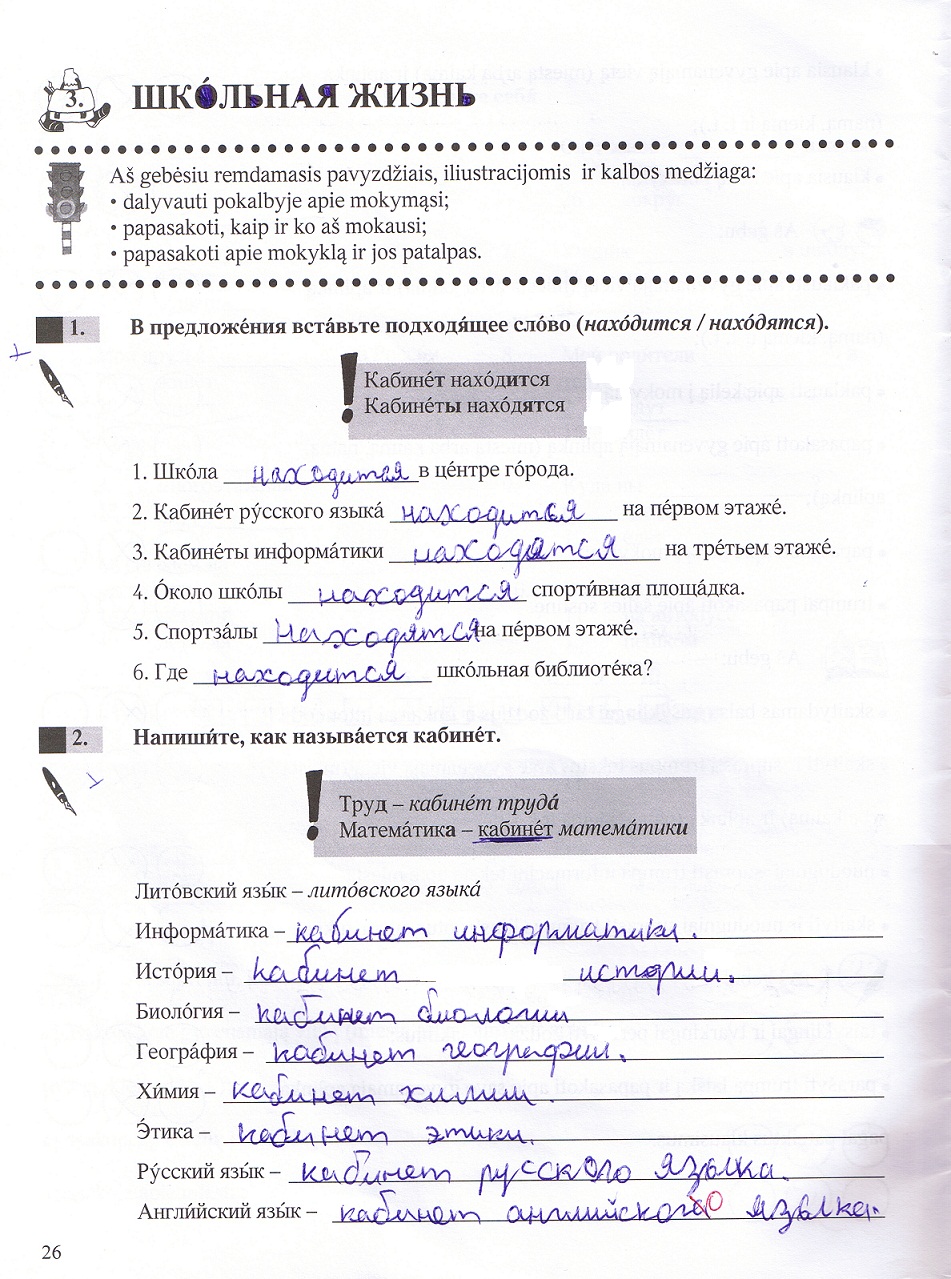 3. ШКО́ЛЬНАЯ ЖИЗНЬ
Aš gebėsiu remdamasis pavyzdžiais, iliustracijomis ir kalbos medžiaga:
• dalyvauti pokalbyje apie mokymąsi;
• papasakoti, kaip ir ko aš mokausi;
• papasakoti apie mokyklą ir jos patalpas.
1. В предложе́ния вста́вьте подходя́щее сло́во (нахо́дится / нахо́дятся).
Кабине́т нахо́дится
Кабине́ты нахо́дятся
1. Шко́ла находится в це́нтре го́рода.
2. Кабине́т ру́сского языка́ находится на пе́рвом этаже́.
3. Кабине́ты информа́тики находятся на тре́тьем этаже́.
4. О́коло шко́лы находится спорти́вная площа́дка.
5. Спортза́лы Находятся на пе́рвом этаже́.
6. Где находится шко́льная библиоте́ка?
2. Напиши́те, как называ́ется кабине́т.
Труд – кабине́т труда́
Матема́тика – кабине́т матема́тики
Лито́вский язы́к – лито́вского языка́
Информа́тика – кабинет информатики.
Исто́рия – кабинет истории.
Биоло́гия – кабинет биологии
Геогра́фия – кабинет географии.
Хи́мия – кабинет химии.
Э́тика – кабинет этики.
Ру́сский язы́к – кабинет русского языка.
Англи́йский язы́к – кабинет английского языка.
26